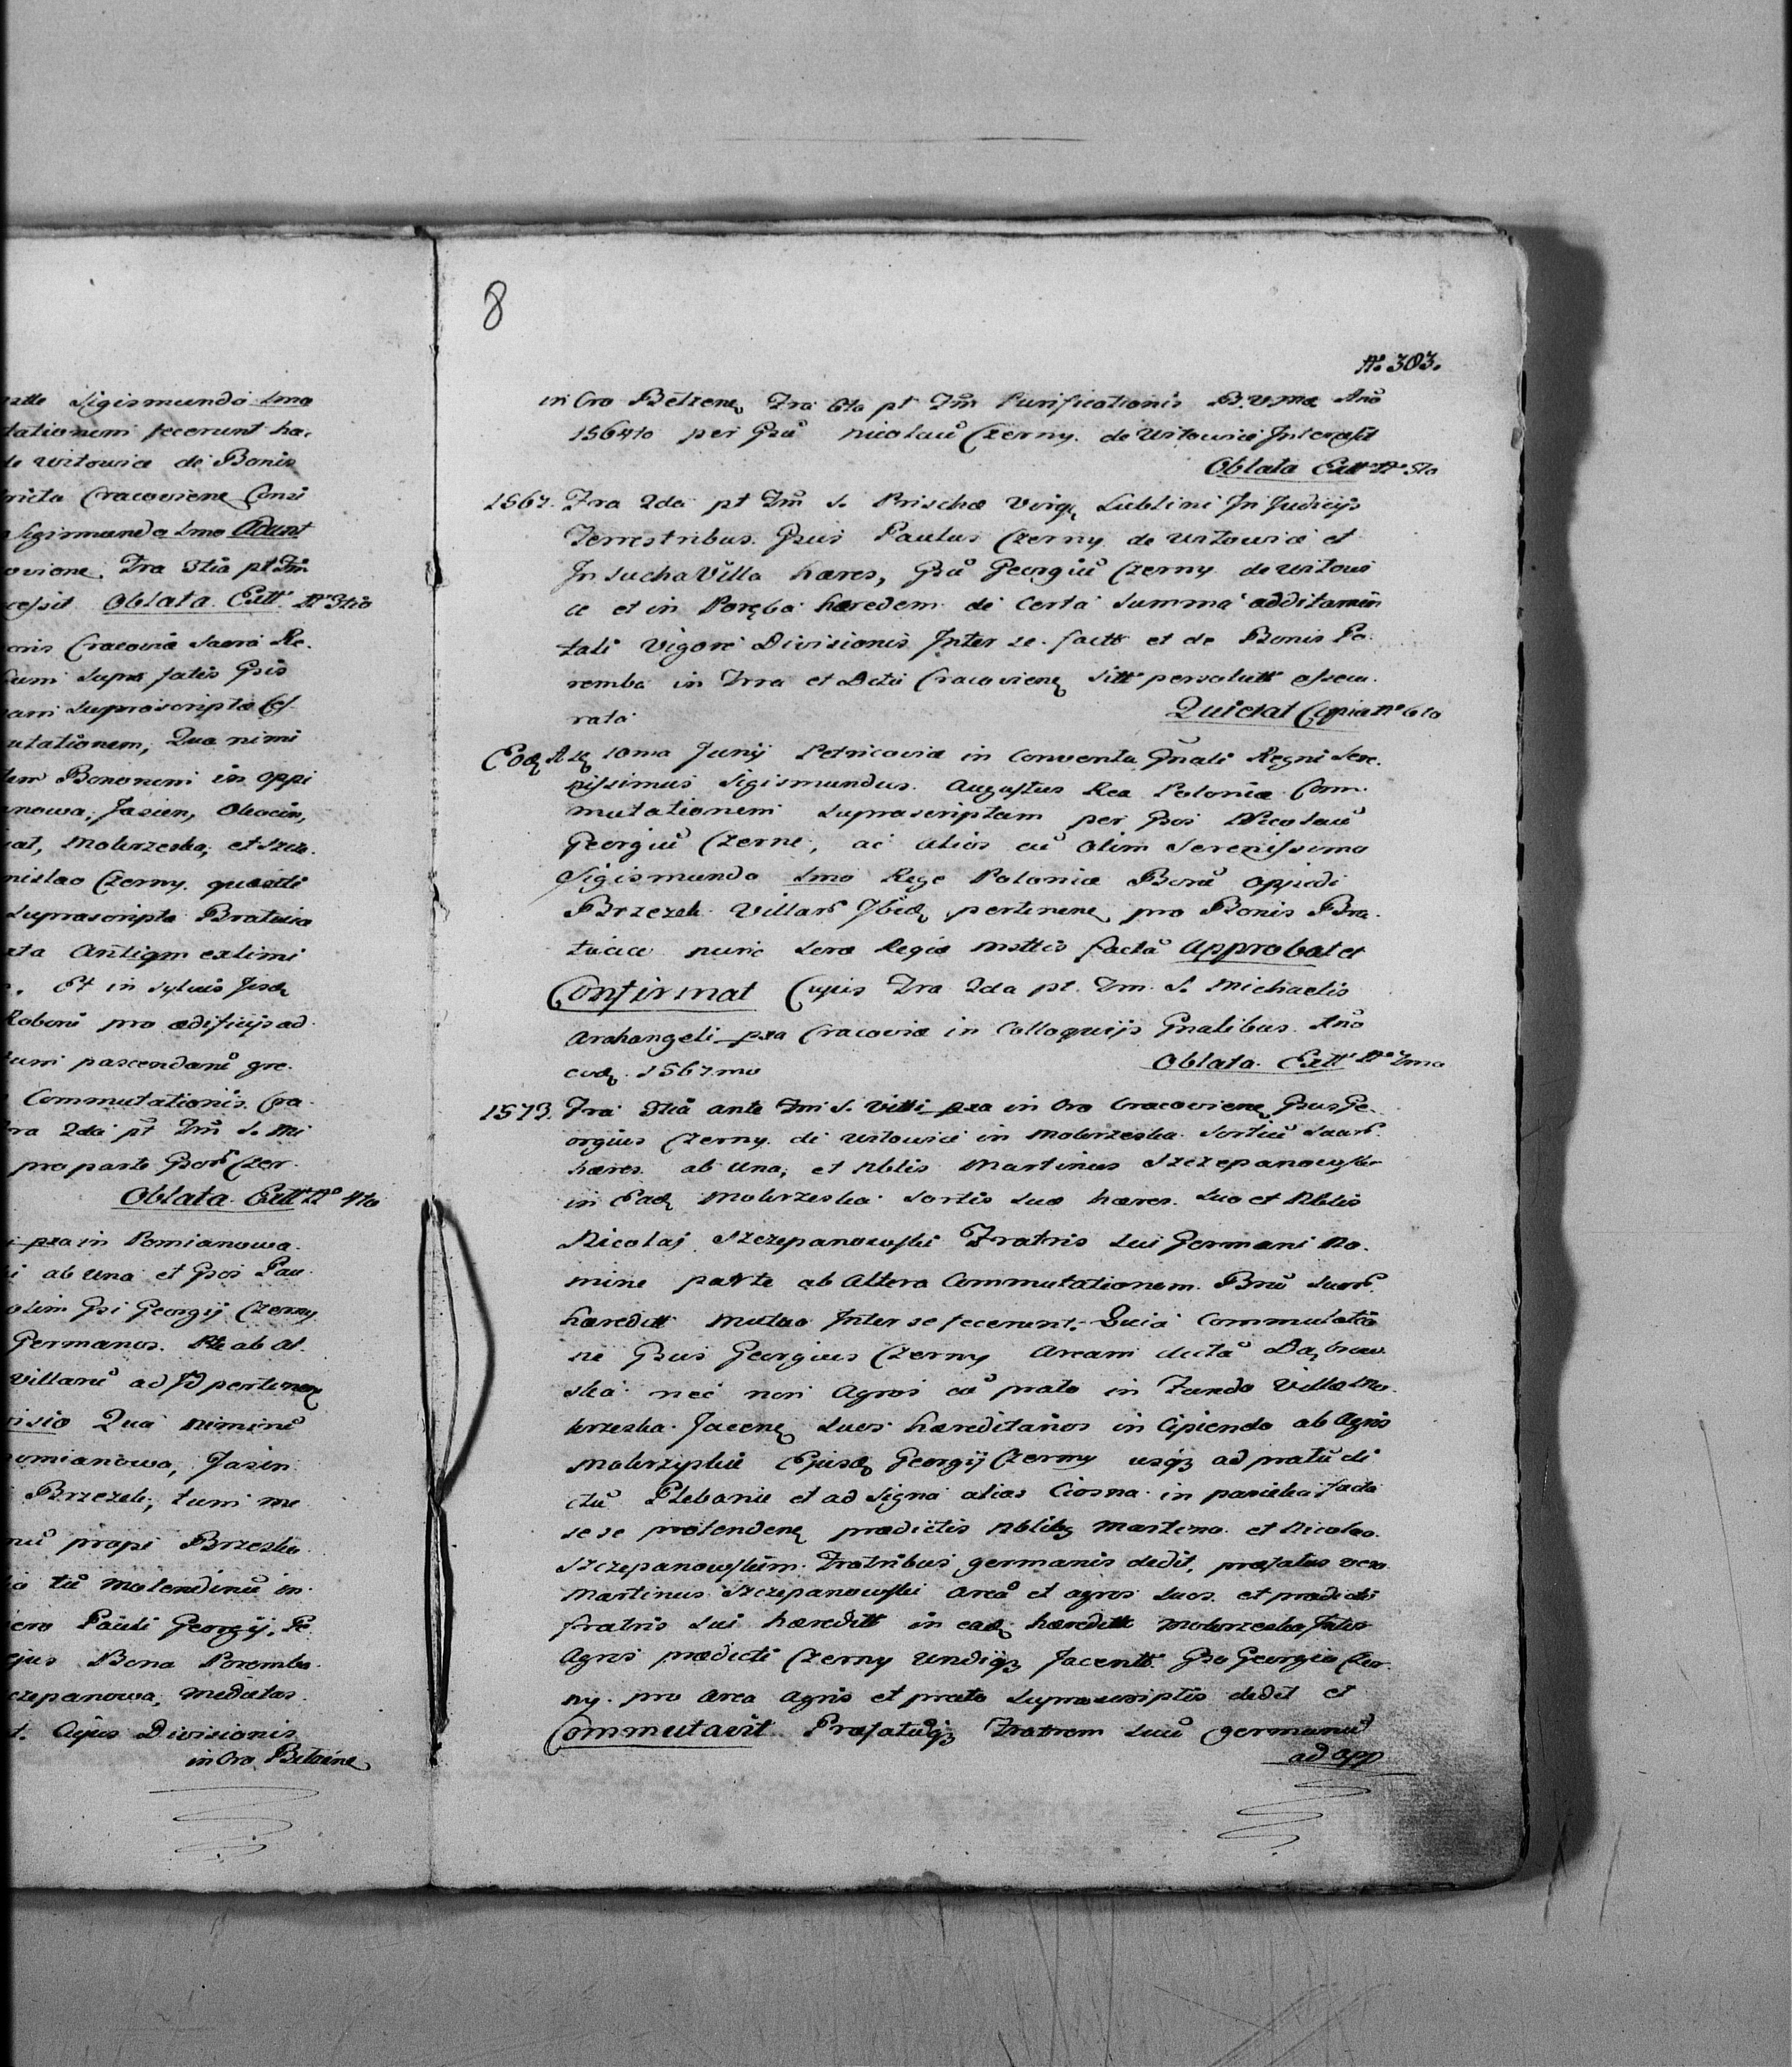 ratle Sigismundo Imo
tationem fecerunt ha-
de Witowice de Bonis
tricta Cracoviene Consi
Sigismundo Imo Adunt
oviene. Fra 3tia pt Fm
cessit Oblata Extt No 3tio
oris Cracoviæ Sacra Re-
cum supra fatis Gsis
nam suprascripta Ces
utationem, Qua nimi
dem Bononem in oppi
anowa, Jasien, Okocim,
iat, Mokrzeska, et Szcze.
nislao Czerny. quondi
Suprascripta Bratuica
xta Antiqm extimi
. Et in Sylvis Jisdę
Robora pro ædificijs ad
tum pascendarũ gre.
Commutationis Cra.
Fra 2da pt Fm S. Mi
pro parte Gsorũ Czer.
Oblata Extt No 4to
i pxa in Pomianowa.
i ab una et Gsos Pau
olim Gsi Georgij Czerny
Germanos. Pte ab Al.
Villarũ ad Id pertinenę
isio Qua nimirũ
omianowa, Jasin
Brzezek, tum me
nũ prope Brzesko
ia tũ Molendinũ in
ero Pauli Georgij, Pe
ejus Bona Poremba
czepanowa, medietas
t. Cujus Divisionis
in Cro Bełziene
8
No 303.
in Cro Bełzene Fra 6ta pt Fm Purificationis B.V.Mæ Ano
1564to per Gsũ Nicolaũ Czerny de Witowice Intercessit
Oblata Extt No 5to
1567. Fra 2da pt Fm S. Priscæ Virgę Lublini In Judicijs
Terrestribus. Gsus Paulus Czerny de Witowice et
In Sucha Villa hæres, Gsũ Georgiũ Czerny de Witowi
ce et in Poręba hæredem de Certa Summa additamen
tali Vigore Divisionis Inter se factæ et de Bonis Po.
remba in Trra et Dctu Cracovienę Sitt persolutt assecu.
rata
Quietat Copia No 6to
Eodę A 10ma Junij Petricoviæ in Conventu Gnali Regni Sere.
nissimus Sigismundus Augustus Rex Poloniæ Com.
mutationem Suprascriptam per Gsos Nicolaũ
Georgiũ Czerne, ac alios cũ olim Serenissimo
Sigismundo Imo Rege Poloniæ Bonũ Oppidi
Brzezek Villarũ Ibidę pertinenę pro Bonis Bra.
tuice nunc Seræ Regiæ Mttis factã Approbat et
Confirmat Cujus Fra 2da pt Fm S. Michaelis
Archangeli pxa Cracoviæ in Colloquijs Gnalibus Ano
eodę. 1567mo
Oblata Extt No 7mo
1573. Fra 3tia ante Fm S. Viti pxa in Cro Cracovienę Gsus Ge.
orgius Czerny de Witowice in Mokrzeska Sortiũ Suarũ
hæres ab Una, et Nblis Martinus Szczepanowski
in Eadę Mokrzeska Sortis Suæ hæres Suo et Nblis
Nicolaj Szczepanowski Fratris Sui Germani No.
mine parte ab Altera Commutationem Bnũ Suorũ
hæreditt Mutuo Inter se fecerunt. Quia Commutatio
ne Gsus Georgius Czerny Aream dictã Dąbrow
ska nec non Agros cũ prato in Fundo Villæ Mo.
krzeska Jacenę Suos hæreditarios in Cipiendo ab Agris
Mokrzyskie Ejusdę Georgij Czerny usqꝫ ad pratũ di
ctũ Plebanie et ad Signa alias Ciosna in facta
se se protendenę prædictis Nblibꝫ Martino et Nicolao
Szczepanowskim Fratribus germanis dedit, præfatus vero
Martinus Szczepanowski Areã et agros Suos et prædicti
fratris Sui hæreditt in eadę hæreditte Mokrzeska Inter
Agros prædicti Czerny Undiqꝫ Jacentt Gso Georgio Czer.
ny. pro Area Agris et prato Suprascriptis dedit et
Commutavit Præfatũqꝫ Fratrem Suũ germanũ
ad app